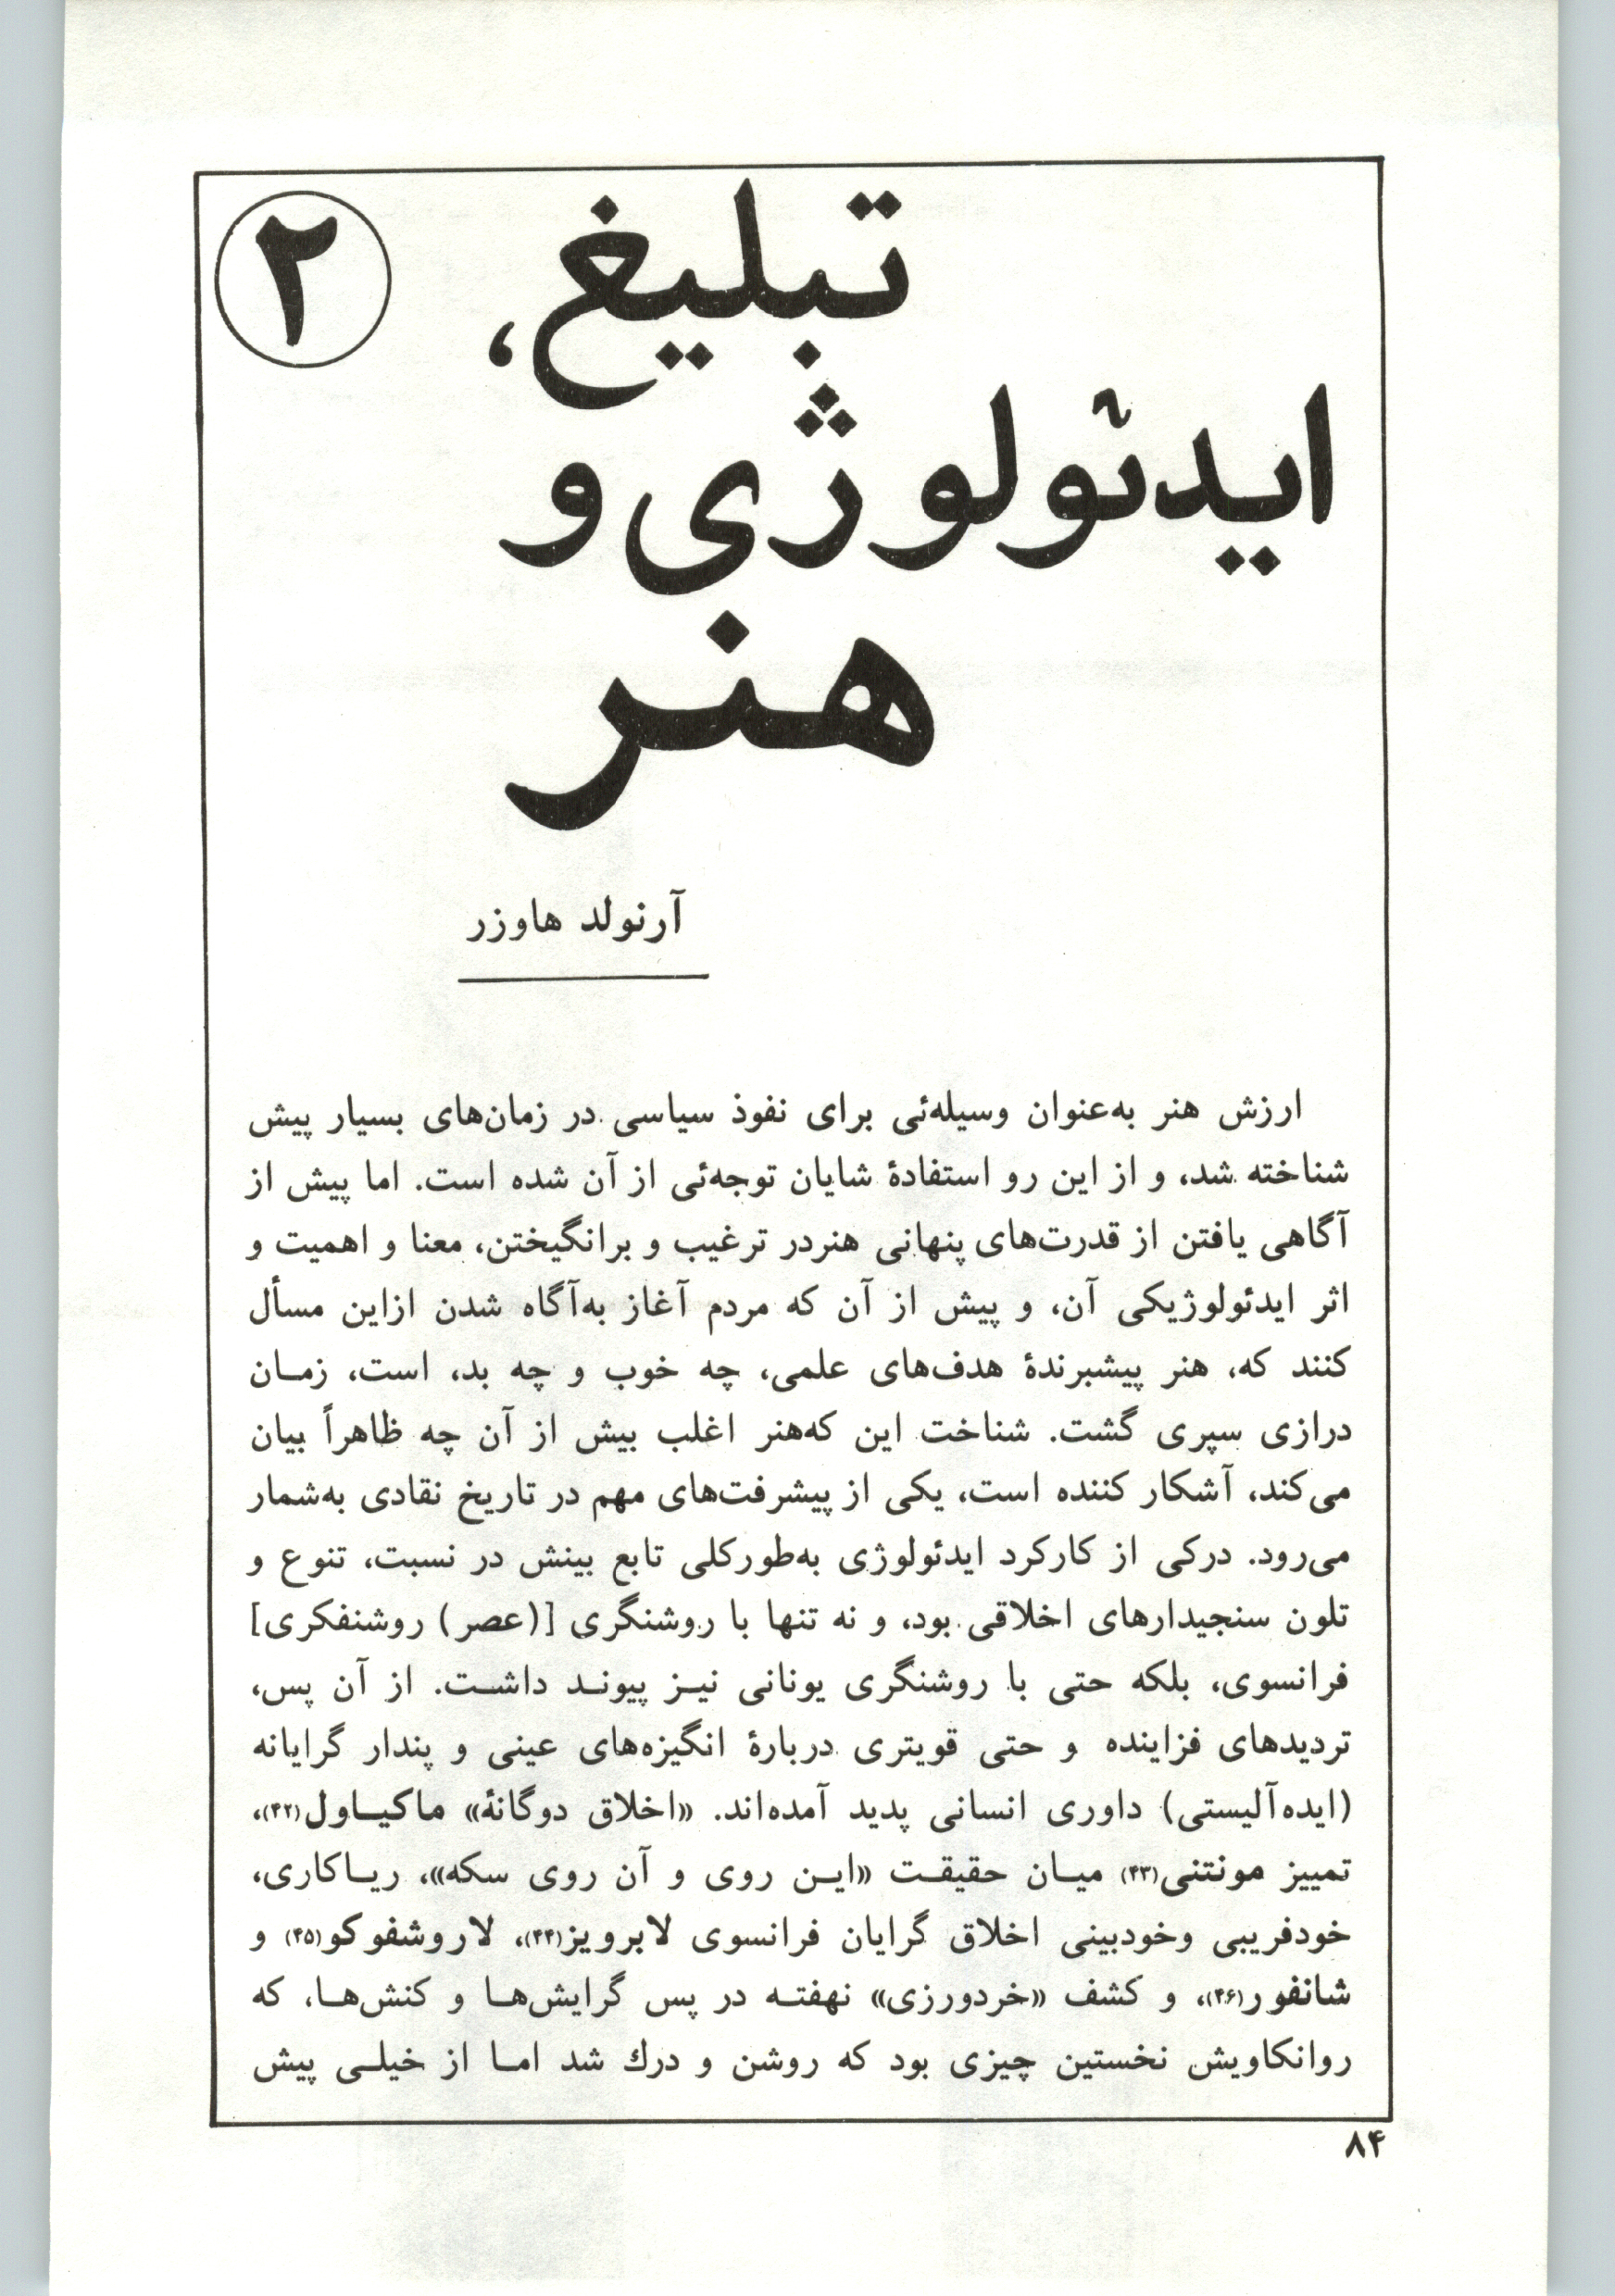 ۲
تبلیغ،
ایدئولوژی و
هنر
آرنولد هاوزر
ارزش هنر به‌عنوان وسیله‌ئی برای نفوذ سیاسی در زمان‌های بسیار پیش
شناخته شد، و از این رو استفادهٔ شایان توجه‌ئی از آن شده است. اما پیش از
آگاهی یافتن از قدرت‌های پنهانی هنردر ترغیب و برانگیختن، معنا و اهمیت و
اثر ایدئولوژیکی آن، و پیش از آن که مردم آغاز به‌آگاه شدن ازاین مسأل
کنند که، هنر پیشبرندهٔ هدف‌های علمی، چه خوب و چه بد، است، زمـان
درازی سپری گشت. شناخت این که‌هنر اغلب بیش از آن چه ظاهراً بیان
می‌کند، آشکار کننده است، یکی از پیشرفت‌های مهم در تاریخ نقادی به‌شمار
می‌رود. درکی از کارکرد ایدئولوژی به‌طورکلی تابع بینش در نسبت، تنوع و
تلون سنجیدارهای اخلاقی بود، و نه تنها با روشنگری [(عصر) روشنفکری]
فرانسوی، بلکه حتی با روشنگری یونانی نیـز پیونـد داشـت. از آن پس،
تردیدهای فزاینده و حتی قویتری دربارهٔ انگیزه‌های عینی و پندار گرایانه
(ایده‌آلیستی) داوری انسانی پدید آمده‌اند. «اخلاق دوگانهٔ» ماکیـاول(۴۲)،
تمییز مونتنی(۴۳) میـان حقیقـت «ایـن روی و آن روی سکه»، ریـاکاری،
خودفریبی وخودبینی اخلاق گرایان فرانسوی لابرویز(۴۴)، لاروشفوکو(۴۵) و
شانفور(۴۶)، و کشف «خردورزی» نهفتـه در پس گرایش‌هـا و کنش‌هـا، که
روانکاویش نخستین چیزی بود که روشن و درك شد امـا از خیلـی پیش
۸۴